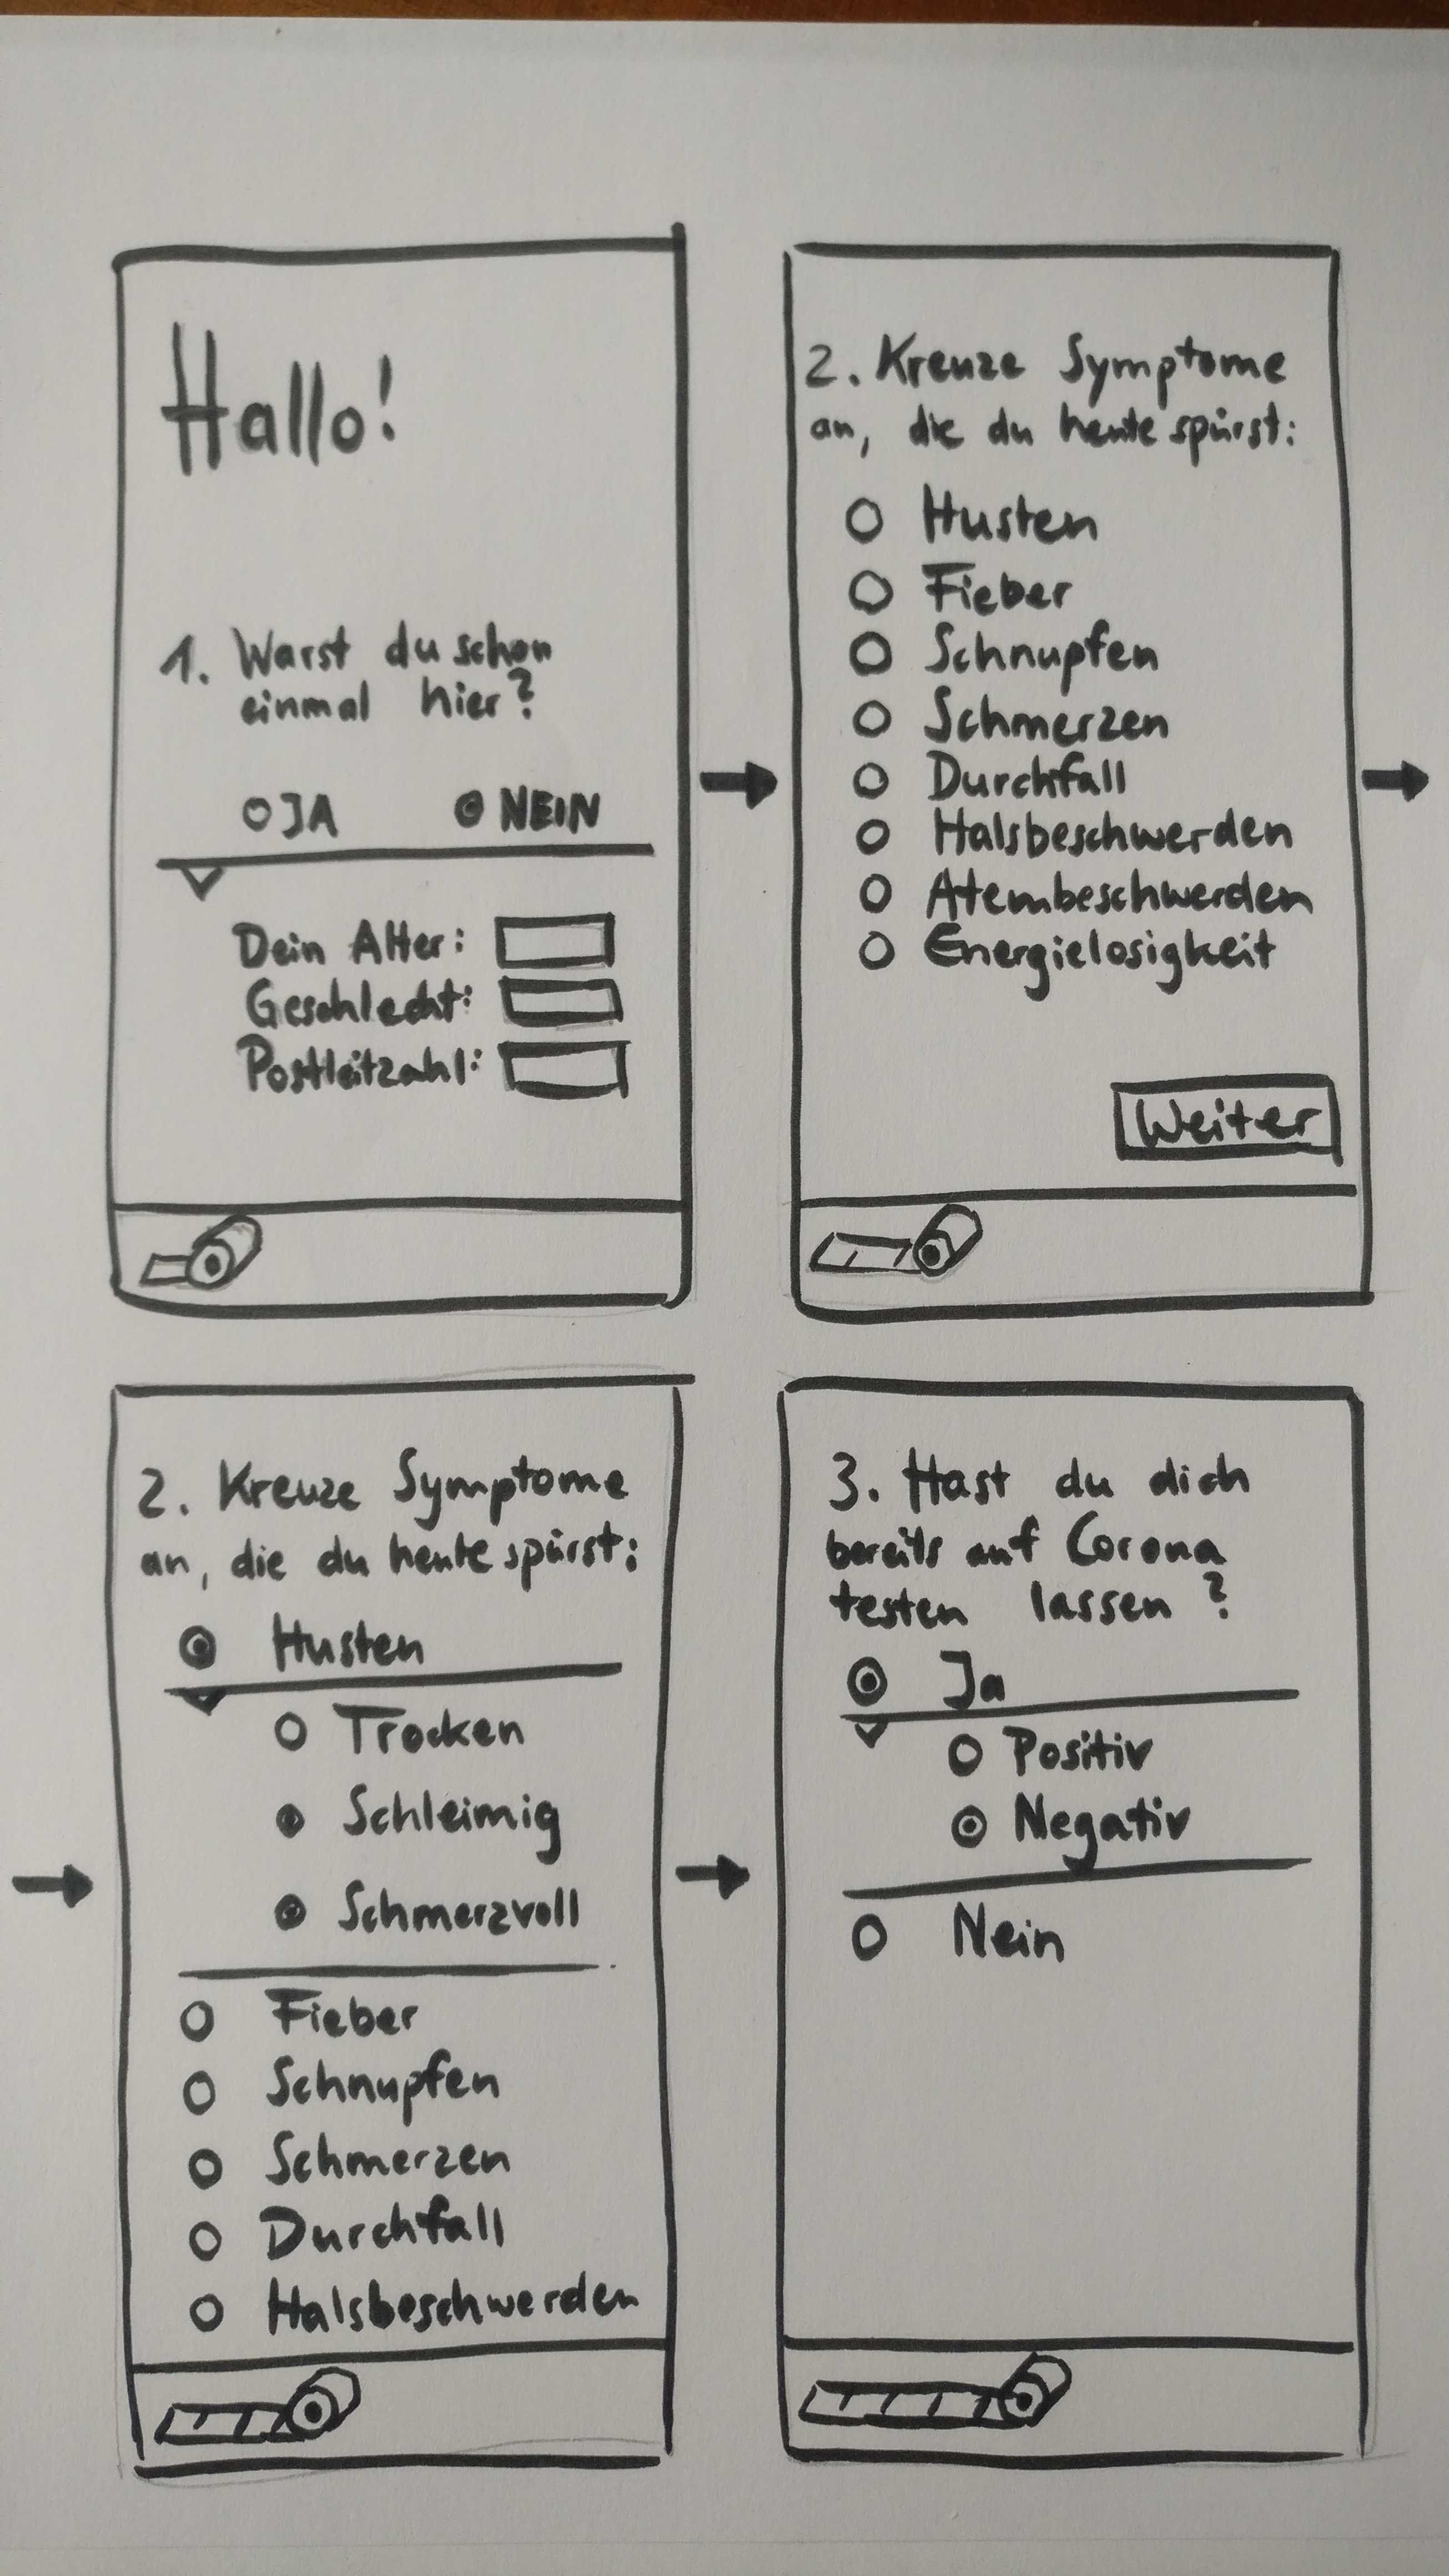 Hallo!
1. Warst du schon
einmal hier?
JA NEIN
Dein Alter:
Geschlecht:
Postleitzahl:
2. Kreuze Symptome
an, die du heute spürst:
Husten
Fieber
Schnupfen
Schmerzen
Durchfall
Halsbeschwerden
Atembeschwerden
Energielosigkeit
Weiter
2. Kreuze Symptome
an, die du heute spürst:
Husten
Trocken
Schleimig
Schmerzvoll
Fieber
Schnupfen
Schmerzen
Durchfall
Halsbeschwerden
3. Hast du dich
bereits auf Corona
testen lassen?
Ja
Positiv
Negativ
Nein